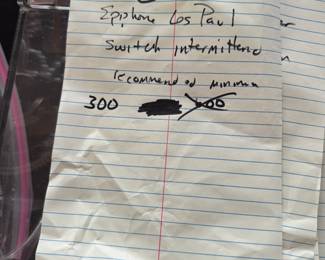 Epiphone Les Paul
Switch intermittend
recommended minimum
300